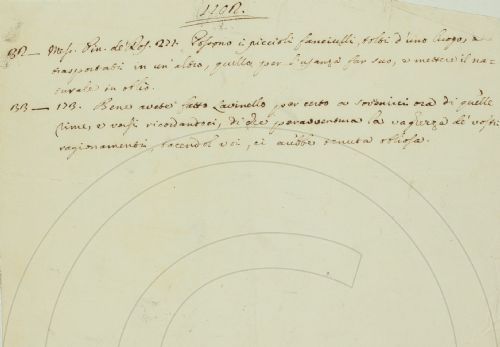 BP — Mess. Pin. de' Ros. 271. Possono i piccioli fanciulli, tolti d'uno luogo, e
trasportati in un'altro, quello, per l'usanza far suo, e mettere il na-
turale in oblio.
BB — 173. Bene avete fatto Lavinello per certo a sovenirci ora di quelle
rime, e voi ricordandoci, di che peravventura la vaghezza de' vostri
ragionamenti, tacendol voi, ci averebbe tenuta obliosa.